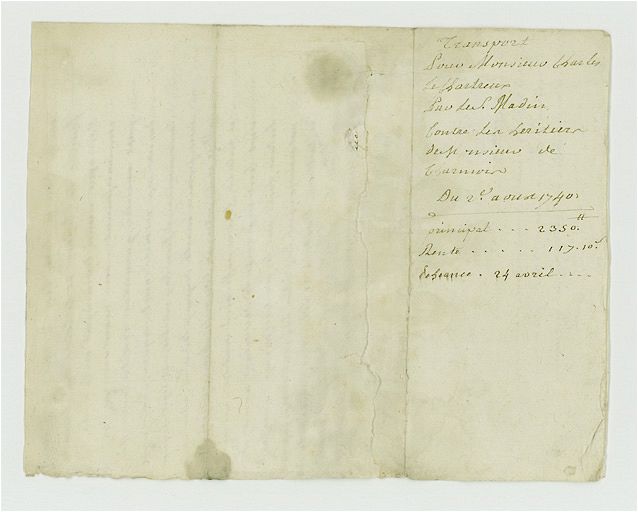 Transport
Pour Monsieur Charles
Le Chartreux
Par Le S. Madin
Contre Les heritiers
de Monsieur de
Du 2.e aoust 1740.
principal . . . 2350.tt
Rente . . . . . 117.10s
Echeance . 24 avril . . .